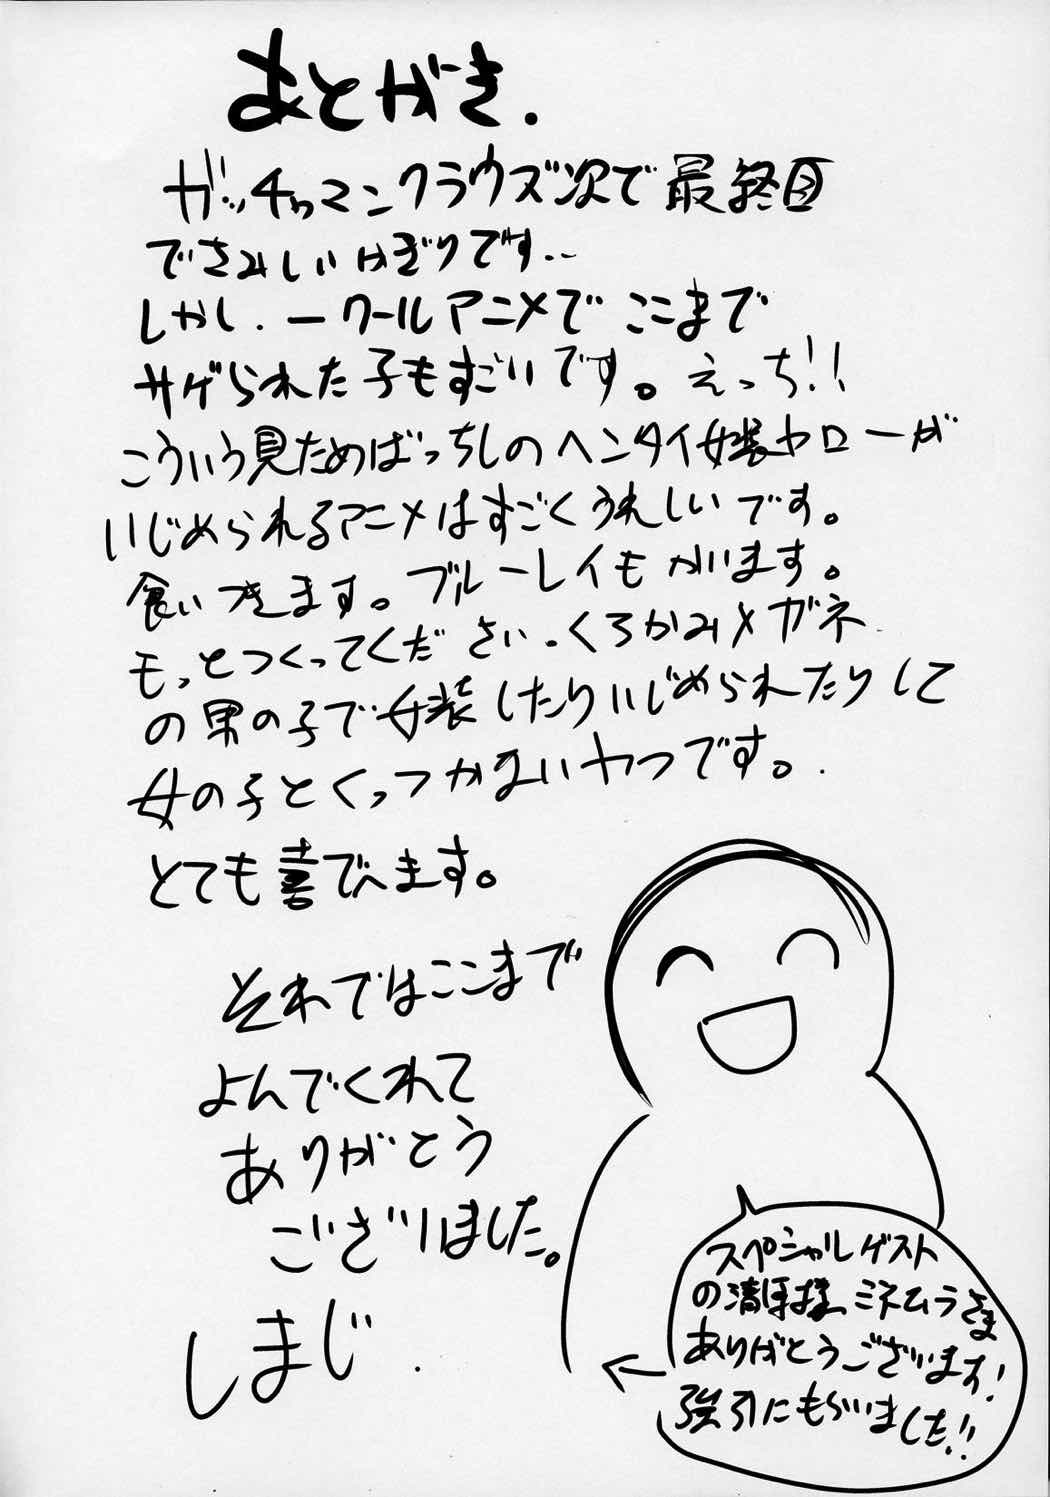 あとがき.
ガッチャマンクラウズ次で最終回
でさみしいかぎりです..
しかし.一クールアニメでここまで
サゲられた子もすごいです。えっち!!
こういう見ためばっちしのヘンタイ女装ヤローが
いじめられるアニメはすごくうれしいです。
食いつきます。ブルーレイもかいます。
もっとつくってください.くろかみメガネ
の男の子で女装したりいじめられたりして
女の子とくっつかないヤつです。.
とても喜びます。
それではここまで
よんでくれて
ありがとう
ございました。
しまじ.
スペシャルゲスト
の清様、ミネムラさま
ありがとうございます!
強引にもらいました!!